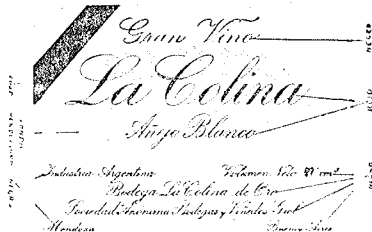 Gran Vino
La Colina
Añejo Blanco
Industria Argentina Volumen Neto cm³
Bodega La Colina de Oro
Sociedad Anónima Bodegas y Viñedos Giol
Mendoza Buenos Aires
NEGRO
ROJO
NEGRO